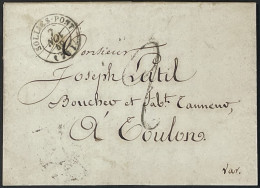 SOLLIÈS-PONT
7
Monsieur
Joseph Lutil
Boucher et fabt. Tanneur,
À Toulon.
Var.